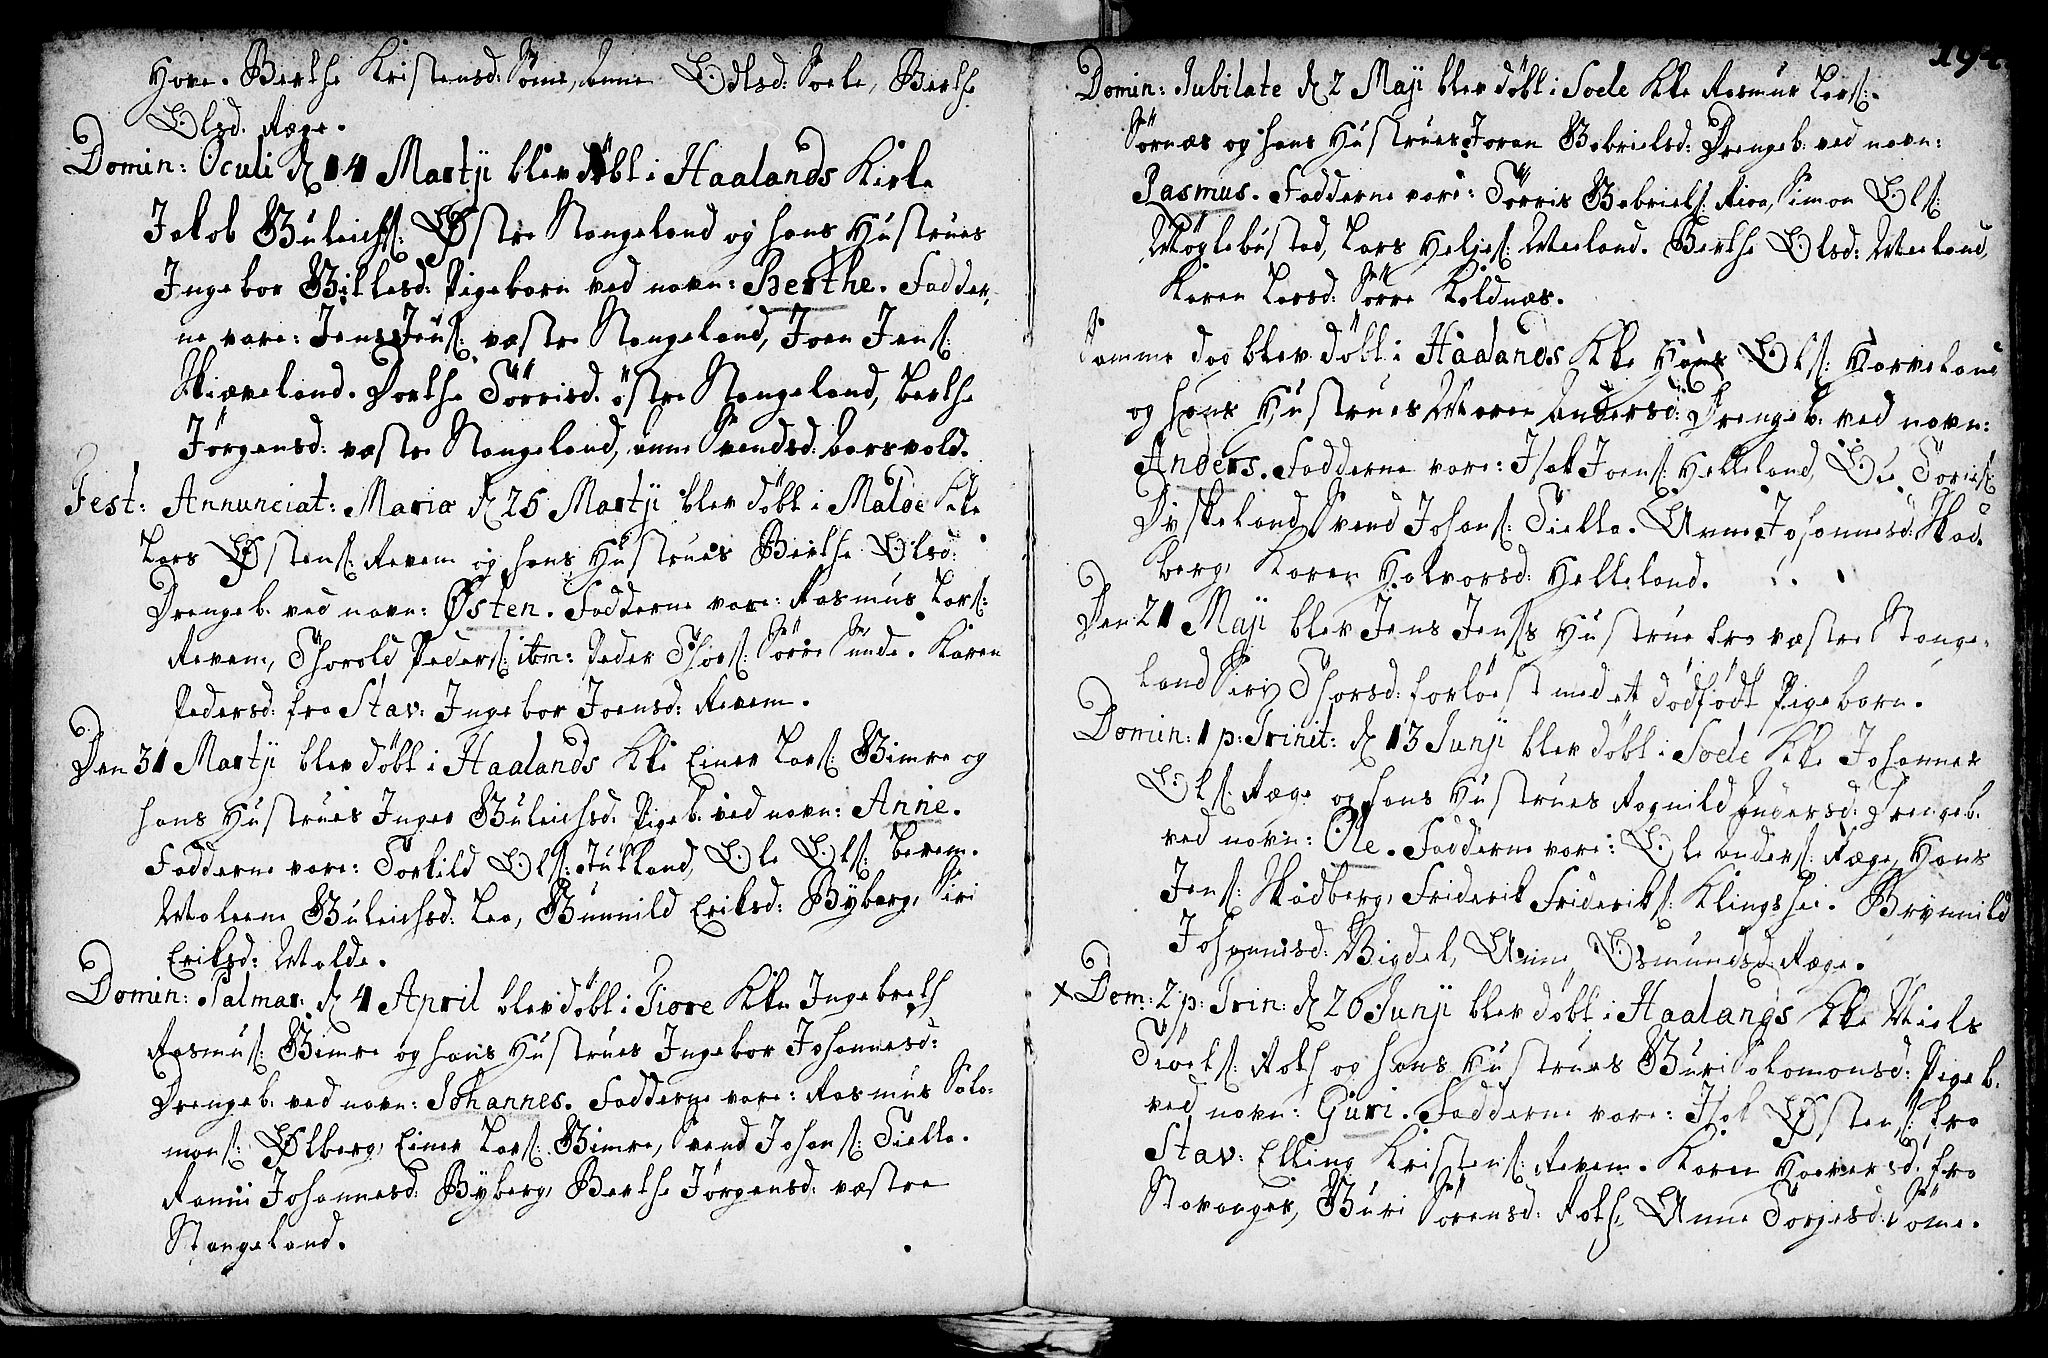 Hove. Berthe Kristensd: Sømme, Anne Odlsd: Soele, Berthe
Olsd. Ræge.
Domin: Oculi d 14 Martji blev døbt i Haalands Kirke
Jakob Guleichs: Østre Stangeland og hans Hustrues
Ingebor Gitlesd: Pigebarn ved navn: Berthe. Fadder,
ne vare: Jens Jens: væstre Stangeland, Joen Jens:
Skiæveland. Dorthe Törrisd. östre Stangeland, Berthe
Jörgensd: væstre Stangeland, Anne Svendsd:
Fest: Annunciat: Mariæ d 25 Martji blev döbt i Maloe Kke
Lars Østens: Revem og hans Hustrues Berthe Olsd:
Drengeb. ved navn: Østen. Fadderne vare: Rasmus Lars:
Revem, Thorold Peders: ibm: Peder Thors: Sörre Sunde. Karen
Pedersd: fra Stav: Ingebor Joensd: Revem.
Den 31 Martji blev döbt i Haalands Kke Einer Lars: Gimre og
hans Hustrues Inger Guleichsd. Pigeb. ved navn: Anne.
Fadderne vare: Torkild Ols: Stutland, Ole Ols: Revem.
Malene Guleichsd: Lea, Gunnild Eriksd: Byberg, Siri
Eriksd: Molde.
Domin: Palmar: d 4 April blev döbt i Tiore Kke Ingebreth
Rasmus: Gimre og hans Hustrues Ingebor Johannesd:
Drengeb. ved navn: Johannes. Fadderne vare: Rasmus Salo-
mons: Ølberg, Einer Lars: Gimre, Svend Johans: Tielta.
Rannü Johannesd: Byberg, Berthe Jörgensd: væstre
Stangeland.
194
Domin: Jubilate d 2 Maji blev döbt i Soele Kke Rasmus Lars:
Sörnæs og hans Hustrues Joran Gabrielsd: Drengeb. ved navn:
Rasmus. Fadderne vare: Törris Gabriels: Simon Ols:
Myglebustad, Lars Heljes: Meeland. Berthe Olsd: Meeland,
Karen Larsd: Sörre Koldnæs.
Samme dag blev döbt i Haalands Kke Hans Ols: Harveland
og hans Hustrues Maren Andersd: Drengeb. ved navn:
Anders. Fadderne vare: Isak Joens: Helleland, Ole Toris:
Dyskeland, Svend Johans: Tielta. Anne Johannesd: Skad-
berg, Karen Halvorsd: Helleland.
Den 21 Maji blev Jens Jens:s Hustrue fra væstre Stange-
land Siri Thorsd: forlöst med et dödfödt Pigebarn.
Domin: 1 p: Trinit: d 13 Junji blev döbt i Soele Kke Johannes
Ols: Ræge og hans Hustrues Ragnild Andersd: Drengeb.
ved navn: Ole. Fadderne vare: Ole Anders: Ræge, Hans
Jens: Skadberg, Friderik Frideriks: Klingshei. Brynnild
Johannisd: Bigdel, Anne Osmundsd: Ræge.
x Dom: 2 p: Trin: d 20 Junji blev döbt i Haalands Kke Niels
Tiöels: Roth og hans Hustrues Guri Salomonsd: Pigeb.
ved navn: Guri. Fadderne vare: Isak Østens: fra
Stav: Elling Kristens: Revem. Karen Haaversd: fra
Stavanger, Guri Sörensd: Roth, Anne Torgesd: Sömme.